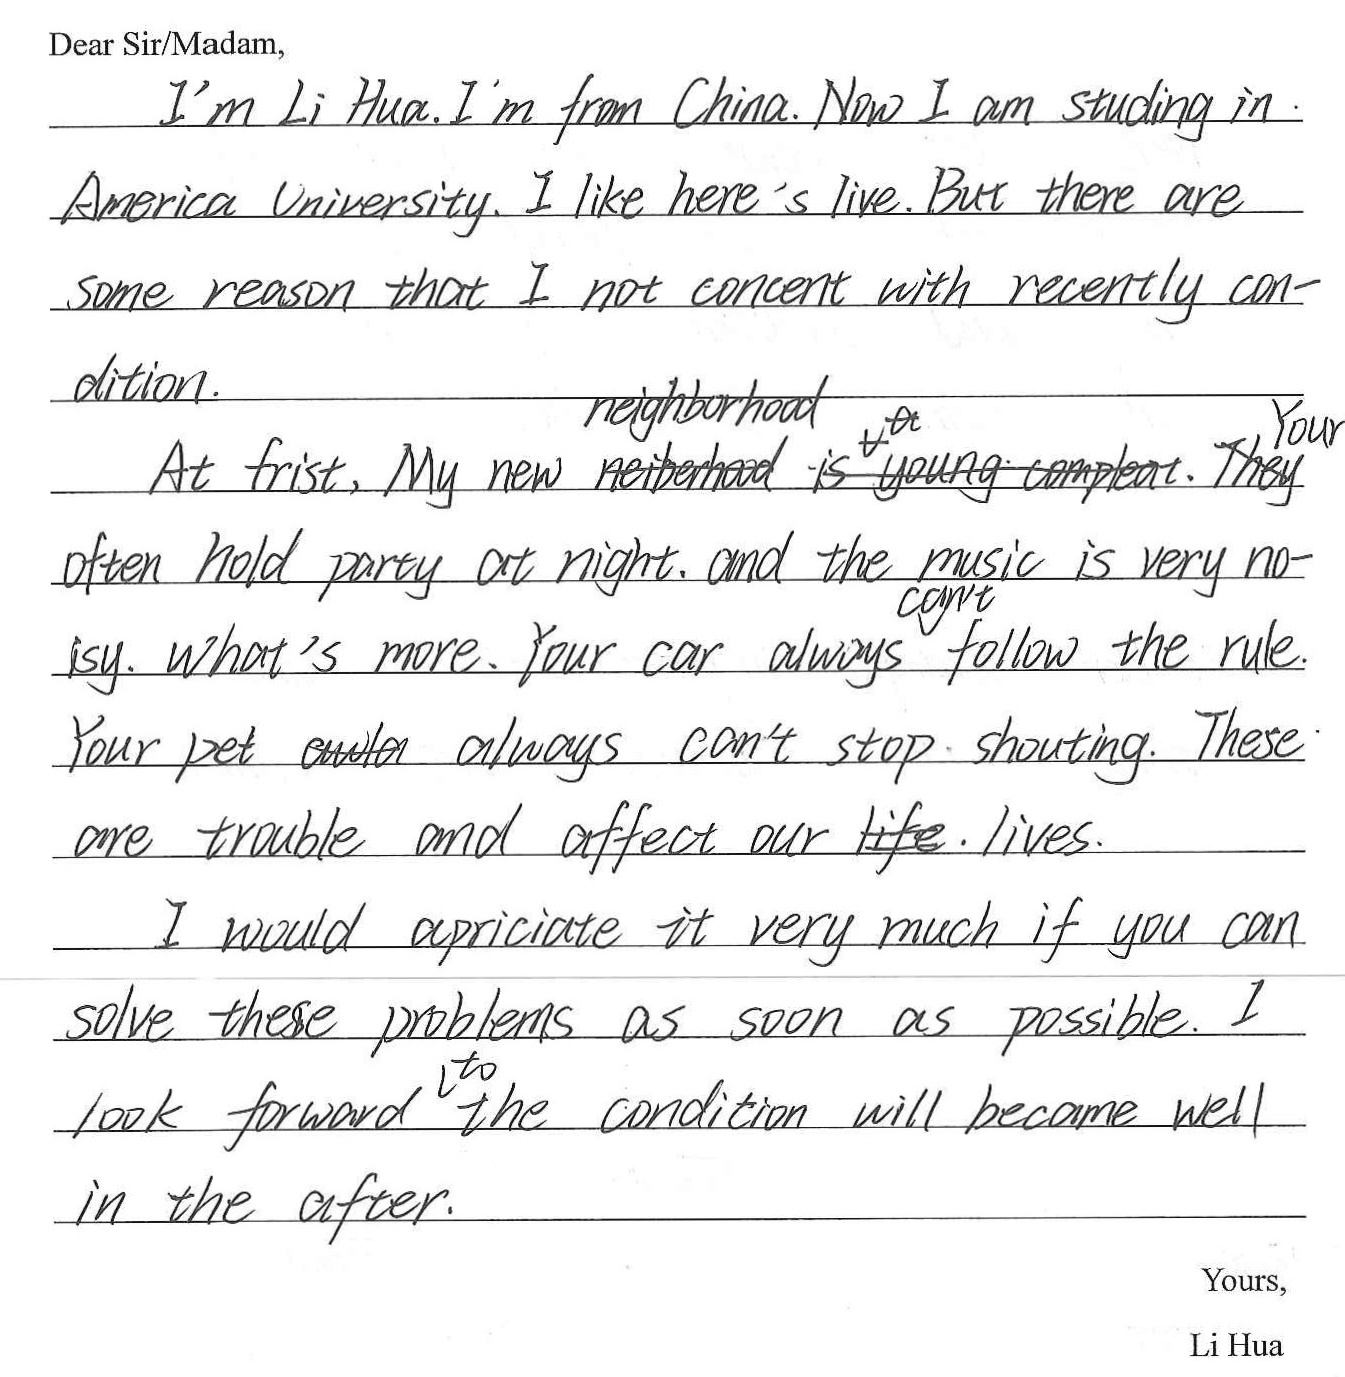 Dear Sir/Madam,
I'm Li Hua. I'm from China. Now I am studing in
America University. I like here's live. But there are
some reason that I not concent with recently con-
dition.
At frist, My new neighborhood. Your
often hold party at night. and the music is very no-
isy. What's more. Your car always can't follow the rule.
Your pet always can't stop shouting. These
are trouble and affect our lives.
I would apriciate it very much if you can
solve these problems as soon as possible. I
look forward to the condition will became well
in the after.
Yours,
Li Hua